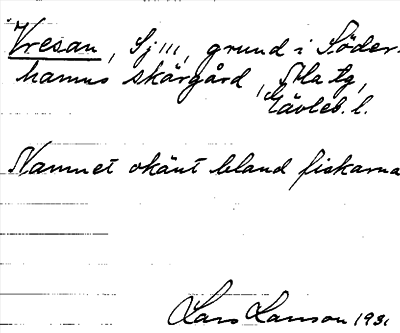 Vresan, Sj III, grund i Söder-
hamns skärgård, Ala tg,
Gävleb. l.
Namnet okänt bland fiskarna
Lars Larsson 1931